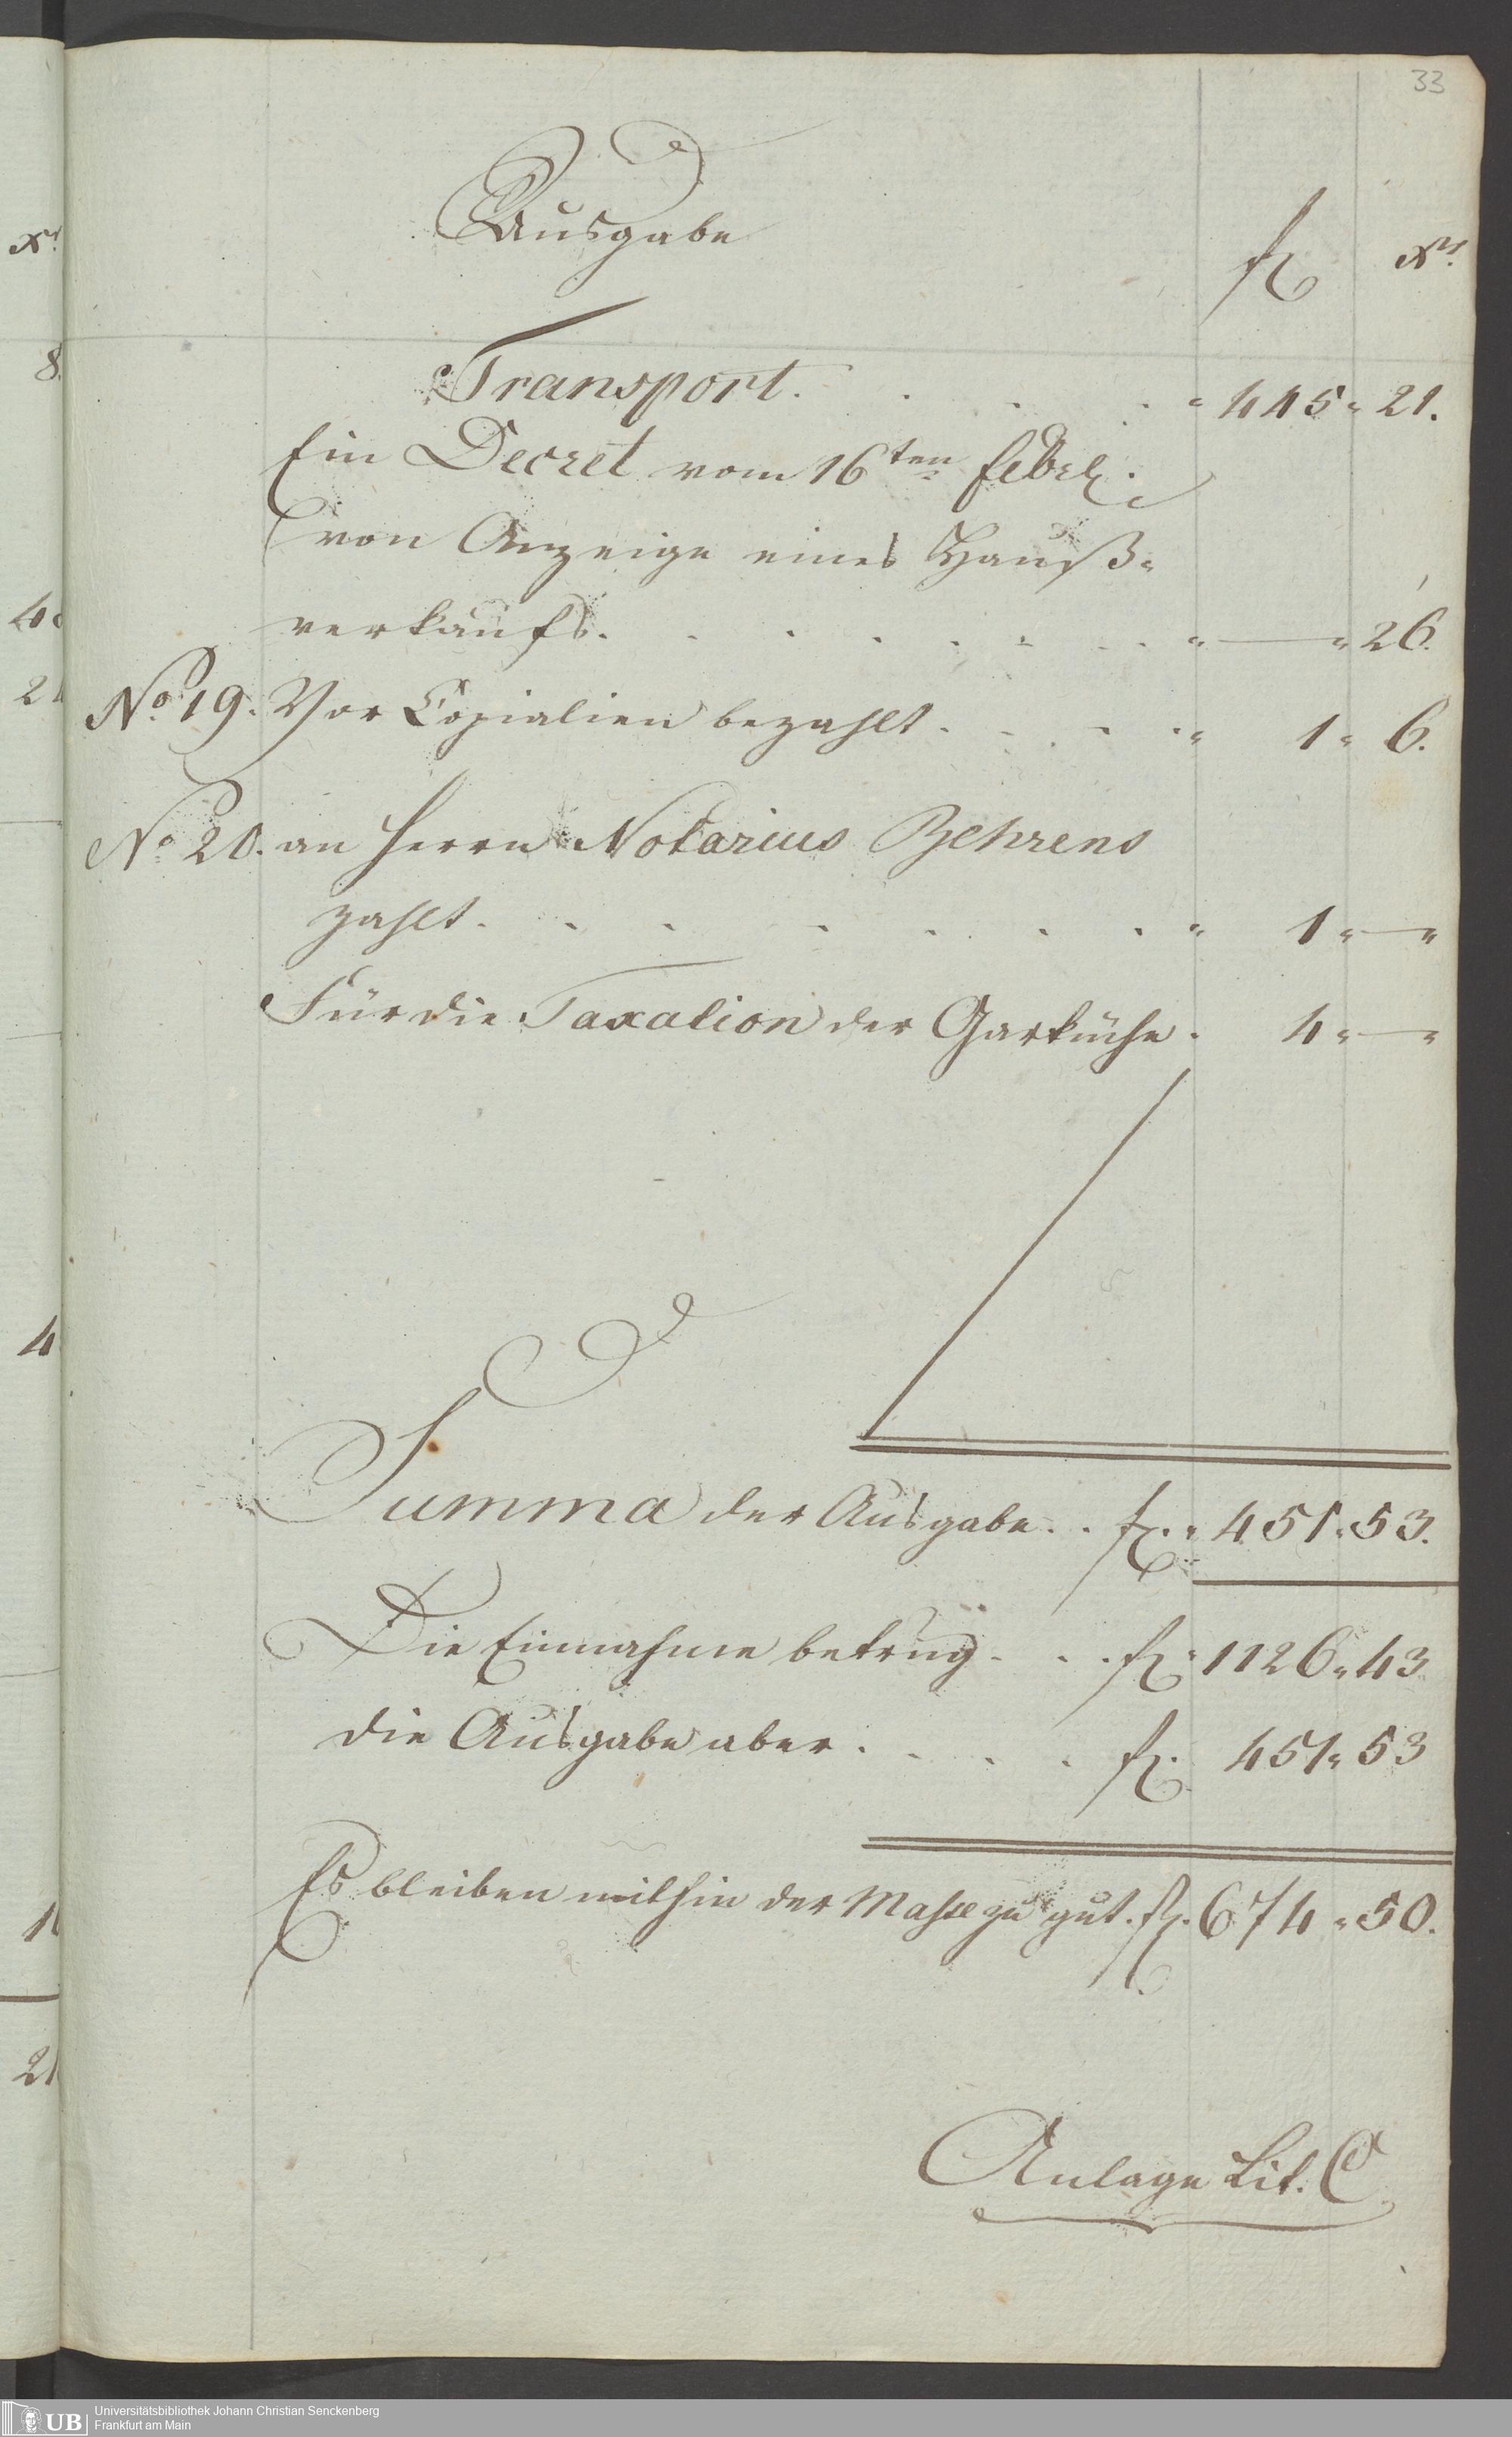 33
Ausgabe
fl xr.
Transport. . . . „ 445 „ 21.
Ein Decret vom 16ten Febrl.
von Anzeige eines Hauß„
verkaufs. . . . . . . . „ — „ 26.
No. 19. Vor Copialien bezahlt. . . . . „ 1 „ 6.
No. 20. an Herrn Notarius Behrens
zahlt. . . . . . . . „ 1 „ — „
Für die Taxation der Garküche. 4 „ — „
Summa der Ausgabe. . fl. „ 451 „ 53.
Die Einnahme betrug. . . fl. „ 1126 „ 43
die Ausgabe aber. . . . fl. 451 „ 53
Es bleiben mithin der Masse zu gut. fl. 674 „ 50.
Anlage Lit. C
xr.
8.
21
4
21
UB
Universitätsbibliothek Johann Christian Senckenberg
Frankfurt am Main